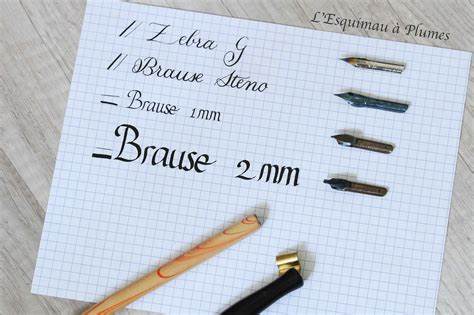 L'Esquimau à Plumes
// Zebra G
// Brause Steno
= Brause 1mm
= Brause 2mm